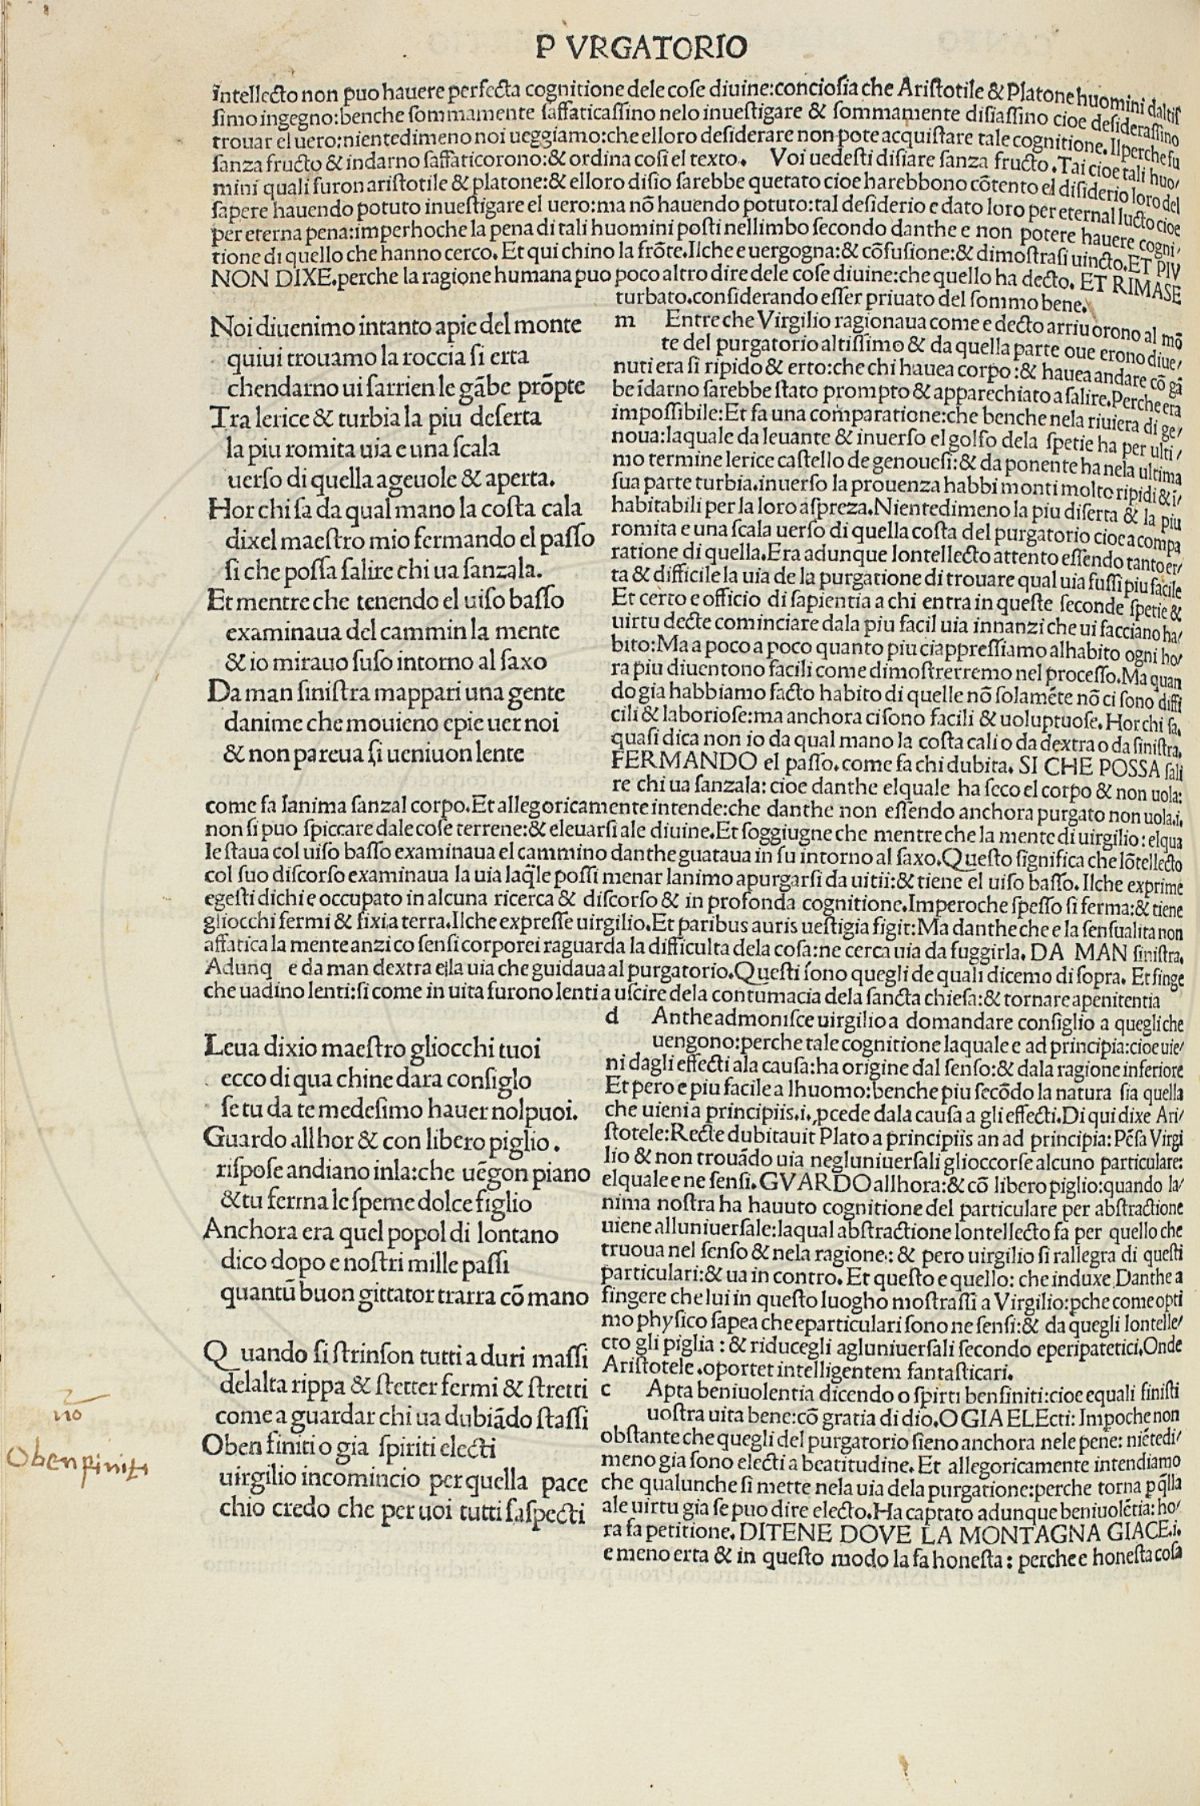 P VRGATORIO
intellecto non puo hauere perfecta cognitione dele cose diuine:conciosia che Aristotile & Platone huomini daltis
simo ingegno:benche sommamente saffaticassino nelo inuestigare & sommamente disiassino cioe desiderassino
trouar el uero:nientedimeno noi ueggiamo:che elloro desiderare non pote acquistare tale cognitione. Il perche fu
sanza fructo & indarno saffaticorono:& ordina cosi el texto. Voi uedesti disiare sanza fructo. Tai cioe tali huo/
mini quali furon aristotile & platone:& elloro disio sarebbe quetato cioe harebbono cōtento el disiderio loro del
sapere hauendo potuto inuestigare el uero:ma nō hauendo potuto:tal desiderio e dato loro per eternal lucto cioe
per eterna pena:imperhoche la pena di tali huomini posti nellimbo secondo danthe e non potere hauere cogni/
tione di quello che hanno cerco. Et qui chino la frōte. Ilche e uergogna:& cōfusione:& dimostrasi uincto. ET PIV
NON DIXE. perche la ragione humana puo poco altro dire dele cose diuine:che quello ha decto. ET RIMASE
turbato. considerando esser priuato del sommo bene.
Noi diuenimo intanto apie del monte
quiui trouamo la roccia si erta
chendarno ui sarrien le gābe prōpte
Tra lerice & turbia la piu deserta
la piu romita uia e una scala
uerso di quella ageuole & aperta.
Hor chi sa da qual mano la costa cala
dixel maestro mio fermando el passo
si che possa salire chi ua sanzala.
Et mentre che tenendo el uiso basso
examinaua del cammin la mente
& io mirauo suso intorno al saxo
Da man sinistra mappari una gente
danime che mouieno e pie uer noi
& non pareua si ueniuon lente
m Entre che Virgilio ragionaua come e decto arriuorono al mō
te del purgatorio altissimo & da quella parte oue erono diue/
nuti era si ripido & erto:che chi hauea corpo:& hauea andare cō gā
be īdarno sarebbe stato prompto & apparechiato a salire. Perche era
impossibile:Et fa una comparatione:che benche nela riuiera di ge/
noua:laquale da leuante & inuerso el golfo dela spetie ha per ulti/
mo termine lerice castello de genouesi:& da ponente ha nela ultima
sua parte turbia.inuerso la prouenza habbi monti molto ripidi & ī/
habitabili per la loro aspreza. Nientedimeno la piu diserta & la piu
romita e una scala uerso di quella costa del purgatorio cioe a compa
ratione di quella. Era adunque lontellecto attento essendo tanto er/
ta & difficile la uia de la purgatione di trouare qual uia fussi piu facile
Et certo e officio di sapientia a chi entra in queste seconde spetie &
uirtu decte cominciare dala piu facil uia innanzi che ui facciano ha/
bito:Ma a poco a poco quanto piu ciappressiamo alhabito ogni ho/
ra piu diuentono facili come dimostrerremo nel processo. Ma quan
do gia habbiamo facto habito di quelle nō solamēte nō ci sono diffi
cili & laboriose:ma anchora ci sono facili & uoluptuose. Hor chi sa,
quasi dica non io da qual mano la costa cali o da dextra o da sinistra,
FERMANDO el passo. come fa chi dubita. SI CHE POSSA sali
re chi ua sanzala: cioe danthe elquale ha seco el corpo & non uola:
come fa lanima sanzal corpo. Et allegoricamente intende:che danthe non essendo anchora purgato non uola.i.
non si puo spiccare dale cose terrene:& eleuarsi ale diuine. Et soggiugne che mentre che la mente di uirgilio: elqua
le staua col uiso basso examinaua el cammino danthe guataua in su intorno al saxo. Questo significa che lōtellecto
col suo discorso examinaua la uia laq̄le possi menar lanimo apurgarsi da uitii:& tiene el uiso basso. Ilche exprime
e gesti di chi e occupato in alcuna ricerca & discorso & in profonda cognitione. Imperoche spesso si ferma:& tiene
gliocchi fermi & fixi a terra. Ilche expresse uirgilio. Et paribus auris uestigia figit: Ma danthe che e la sensualita non
affatica la mente anzi co sensi corporei raguarda la difficulta dela cosa:ne cerca uia da fuggirla. DA MAN sinistra.
Adunq e da man dextra ella uia che guidaua al purgatorio. Questi sono quegli de quali dicemo di sopra. Et finge
che uadino lenti:si come in uita furono lenti a uscire dela contumacia dela sancta chiesa:& tornare a penitentia
Leua dixio maestro gliocchi tuoi
ecco di qua chi ne dara consiglo
se tu da te medesimo hauer nol puoi.
Guardo allhor & con libero piglio.
rispose andiano inla:che uēgon piano
& tu ferma le speme dolce figlio
Anchora era quel popol di lontano
dico dopo e nostri mille passi
quantū buon gittator trarra cō mano
Q uando si strinson tutti a duri massi
delalta rippa & stetter fermi & stretti
come a guardar chi ua dubiādo stassi
O ben finiti o gia spiriti electi
uirgilio incomincio per quella pace
chio credo che per uoi tutti saspecti
d Anthe admonisce uirgilio a domandare consiglio a quegli che
uengono:perche tale cognitione laquale e ad principia:cioe uie/
ni dagli effecti ala causa:ha origine dal senso:& dala ragione inferiore
Et pero e piu facile a lhuomo:benche piu secōdo la natura sia quella
che uieni a principiis.i. pcede dala causa a gli effecti. Di qui dixe Ari/
stotele:Recte dubitauit Plato a principiis an ad principia: Pēsa Virgi
lio & non trouādo uia negluniuersali glioccorse alcuno particulare:
elquale e ne sensi. GVARDO allhora:& cō libero piglio:quando la/
nima nostra ha hauuto cognitione del particulare per abstractione
uiene alluniuersale:laqual abstractione lontellecto fa per quello che
truoua nel senso & nela ragione: & pero uirgilio si rallegra di questi
particulari:& ua in contro. Et questo e quello: che induxe Danthe a
fingere che lui in questo luogho mostrassi a Virgilio:pche come opti
mo physico sapea che eparticulari sono ne sensi:& da quegli lontelle/
cto gli piglia : & riducegli agluniuersali secondo e peripatetici. Onde
Aristotele .oportet intelligentem fantasticari.
c Apta beniuolentia dicendo o spirti ben finiti:cioe equali finisti
uostra uita bene:cō gratia di dio. O GIA ELEcti: Impoche non
obstante che quegli del purgatorio sieno anchora nele pene: niētedi/
meno gia sono electi a beatitudine. Et allegoricamente intendiamo
che qualunche si mette nela uia dela purgatione:perche torna p q̄lla
ale uirtu gia se puo dire electo. Ha captato adunque beniuolētia: ho/
ra fa petitione. DITENE DOVE LA MONTAGNA GIACE.i.
e meno erta & in questo modo la fa honesta : perche e honesta cosa
O ben finiti